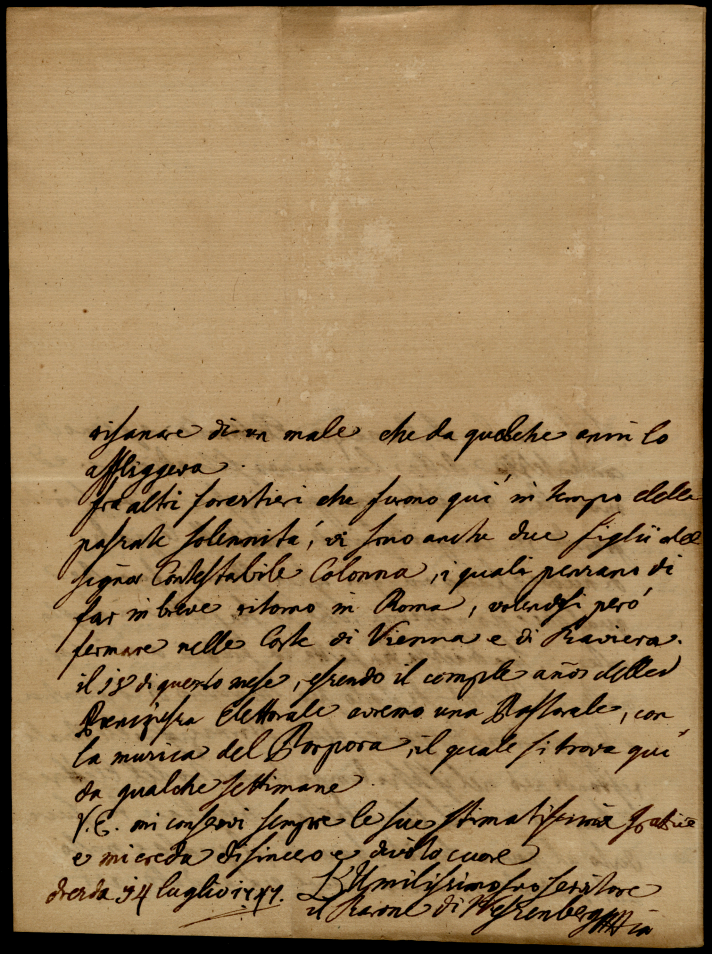 risanare di un male che da qualche anni lo
affliggeva.
fra altri forestieri che furono quì in tempo della
passate solennità, vi sono anche due figlii del
signor Contestabile Colonna, i quali penzano di
far in breve ritorno in Roma, volendosi però
fermare nelle Corte di Vienna e di Baviera.
il 18 di questo mese, essendo il comple años della
Prencipessa Elettorale avremo una Pastorale, con
la musica del Porpora, il quale si trova quì
da qualche settimane.
V.E. mi conservi sempre le sue stimatissime gratie
e mi creda di sincero e divoto cuore
dresda 14 luglio 1747. L'Umilissimo suo servitore
il Barone di Wessenberg